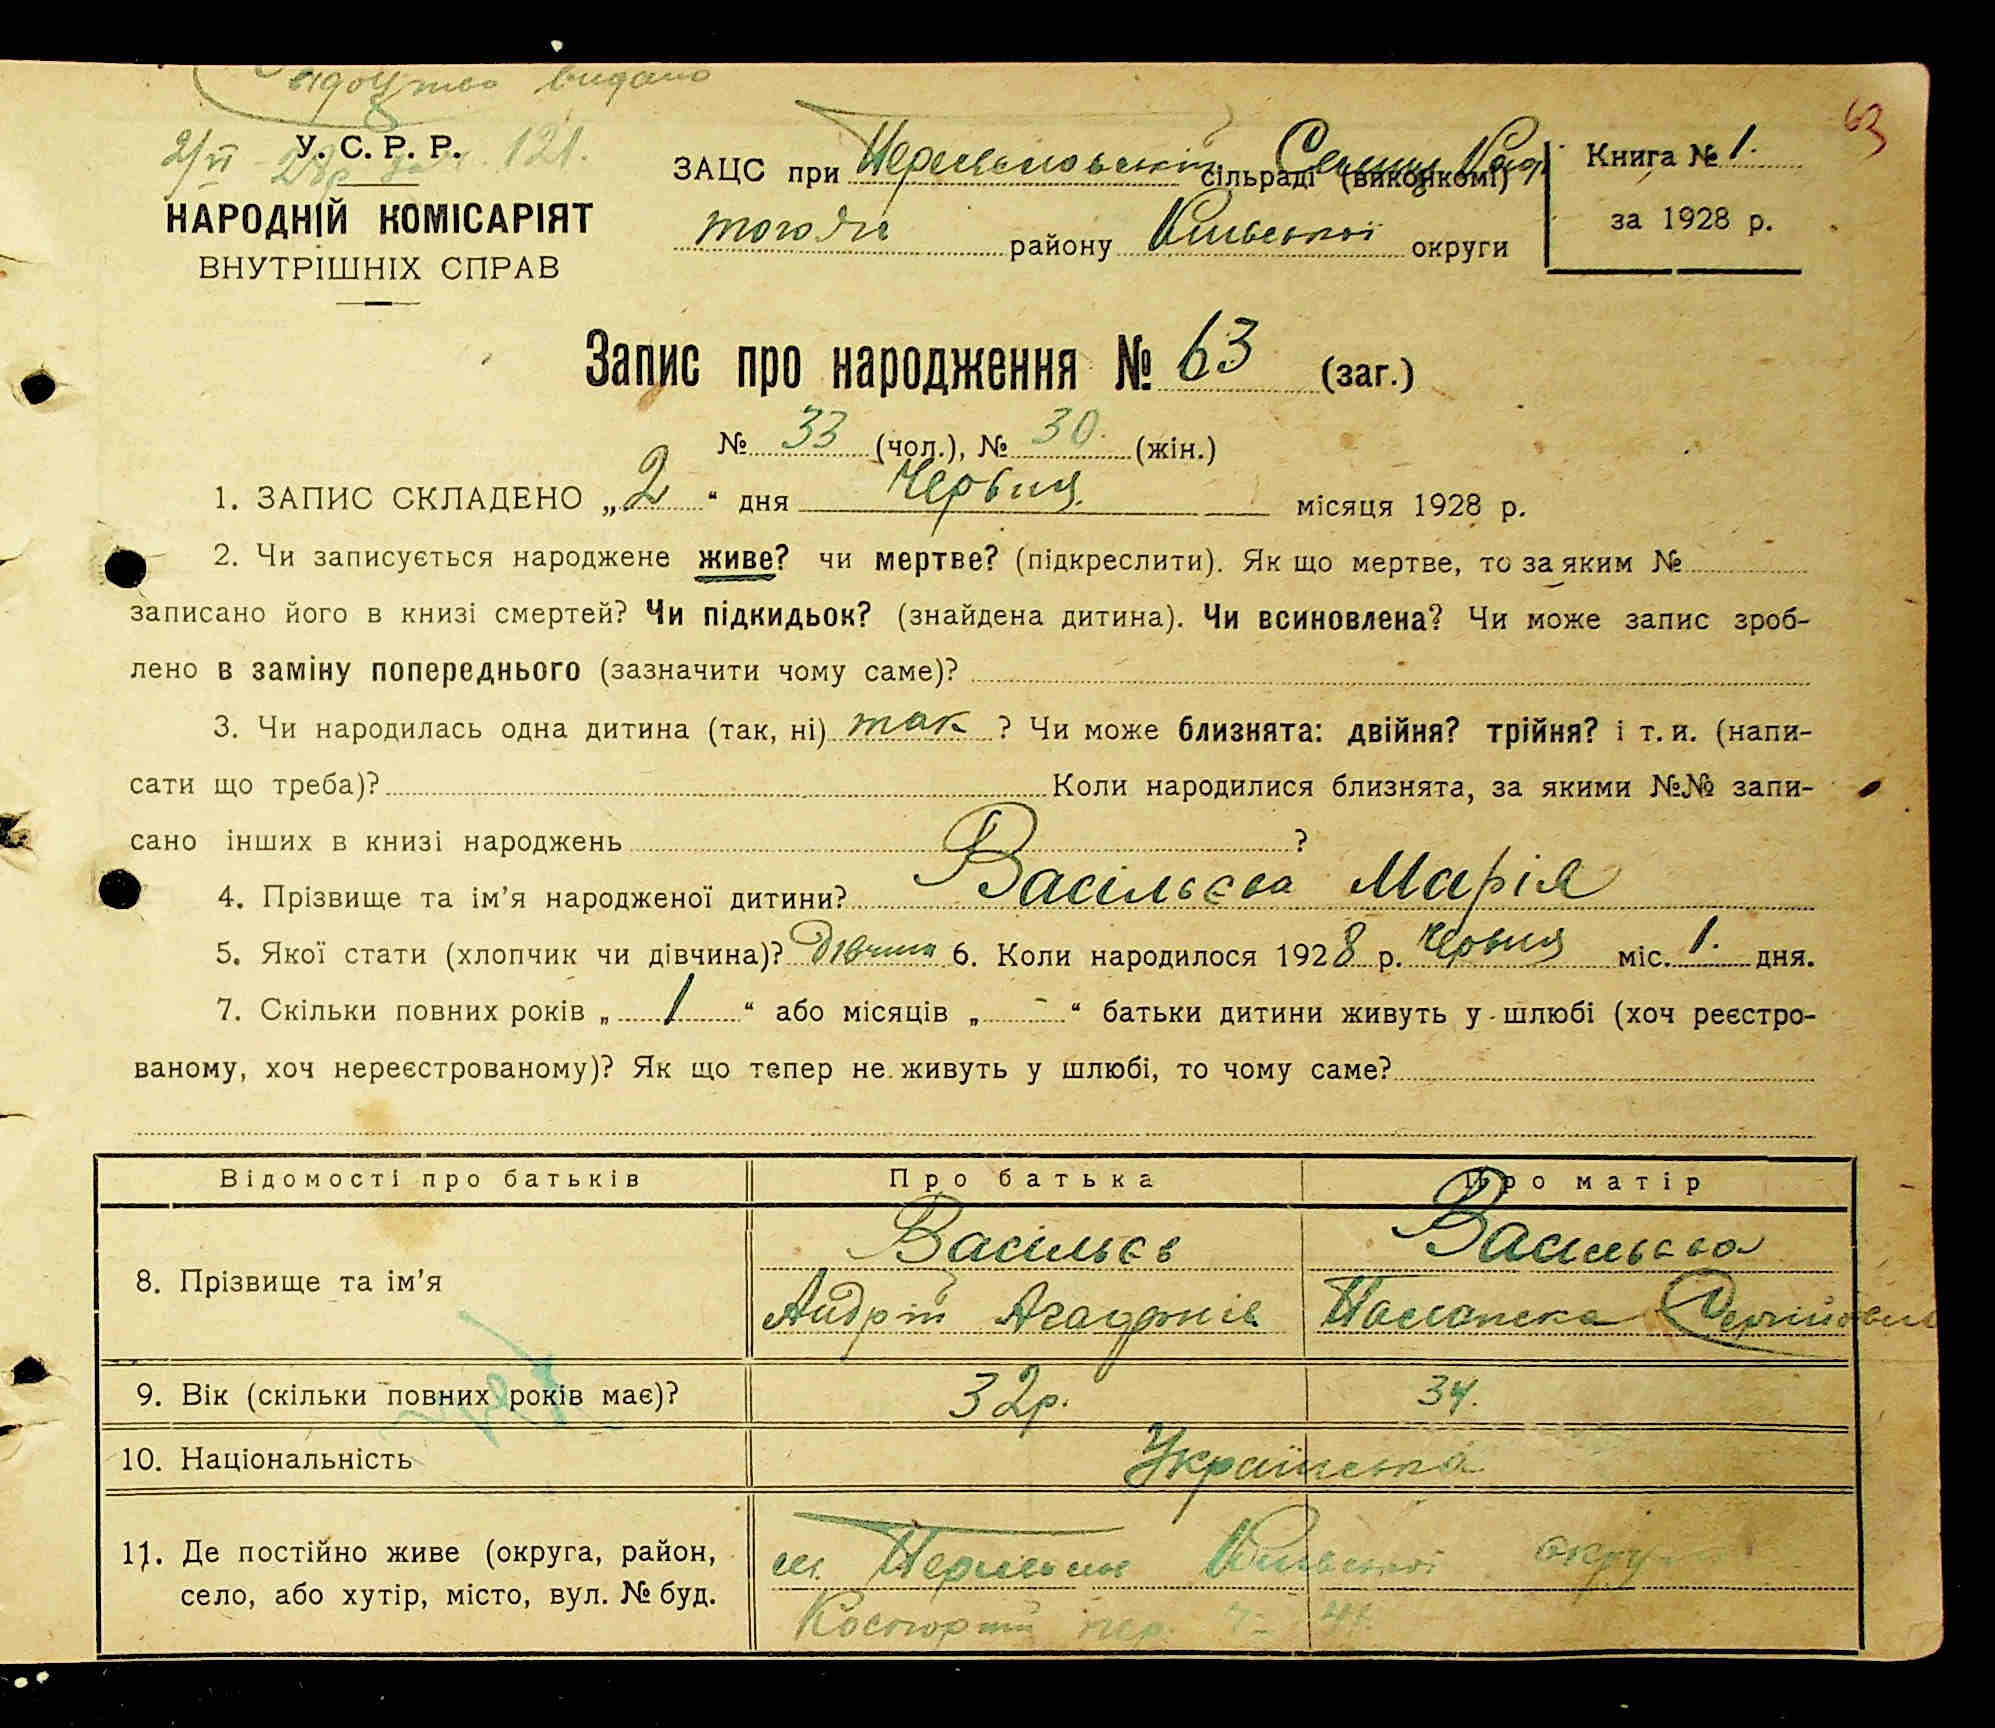 видано
2/VI 28р. 121.
63
У. С. Р. Р.
НАРОДНІЙ КОМІСАРІЯТ
ВНУТРІШНІХ СПРАВ
ЗАЦС при сільраді (виконкомі)
району Київської округи
Книга № 1.
за 1928 р.
Запис про народження № 63 (заг.)
№ 33 (чол.), № 30. (жін.)
1. ЗАПИС СКЛАДЕНО „2“ дня Червня місяця 1928 р.
2. Чи записується народжене живе? чи мертве? (підкреслити). Як що мертве, то за яким №
записано його в книзі смертей? Чи підкидьок? (знайдена дитина). Чи всиновлена? Чи може запис зроб-
лено в заміну попереднього (зазначити чому саме)?
3. Чи народилась одна дитина (так, ні) так ? Чи може близнята: двійня? трійня? і т. и. (напи-
сати що треба)? Коли народилися близнята, за якими №№ запи-
сано інших в книзі народжень ?
4. Прізвище та ім'я народженої дитини? Васільєва Марія
5. Якої стати (хлопчик чи дівчина)? Дівчина 6. Коли народилося 1928 р. Червня міс. 1. дня.
7. Скільки повних років „1“ або місяців „-“ батьки дитини живуть у шлюбі (хоч реєстро-
ваному, хоч нереєстрованому)? Як що тепер не живуть у шлюбі, то чому саме?
Відомості про батьків Про батька Про матір
8. Прізвище та ім'я Васільєв Васильєва
Андрій
9. Вік (скільки повних років має)? 32р. 34.
10. Національність Українська
11. Де постійно живе (округа, район, Київської округи
село, або хутір, місто, вул. № буд. пер.